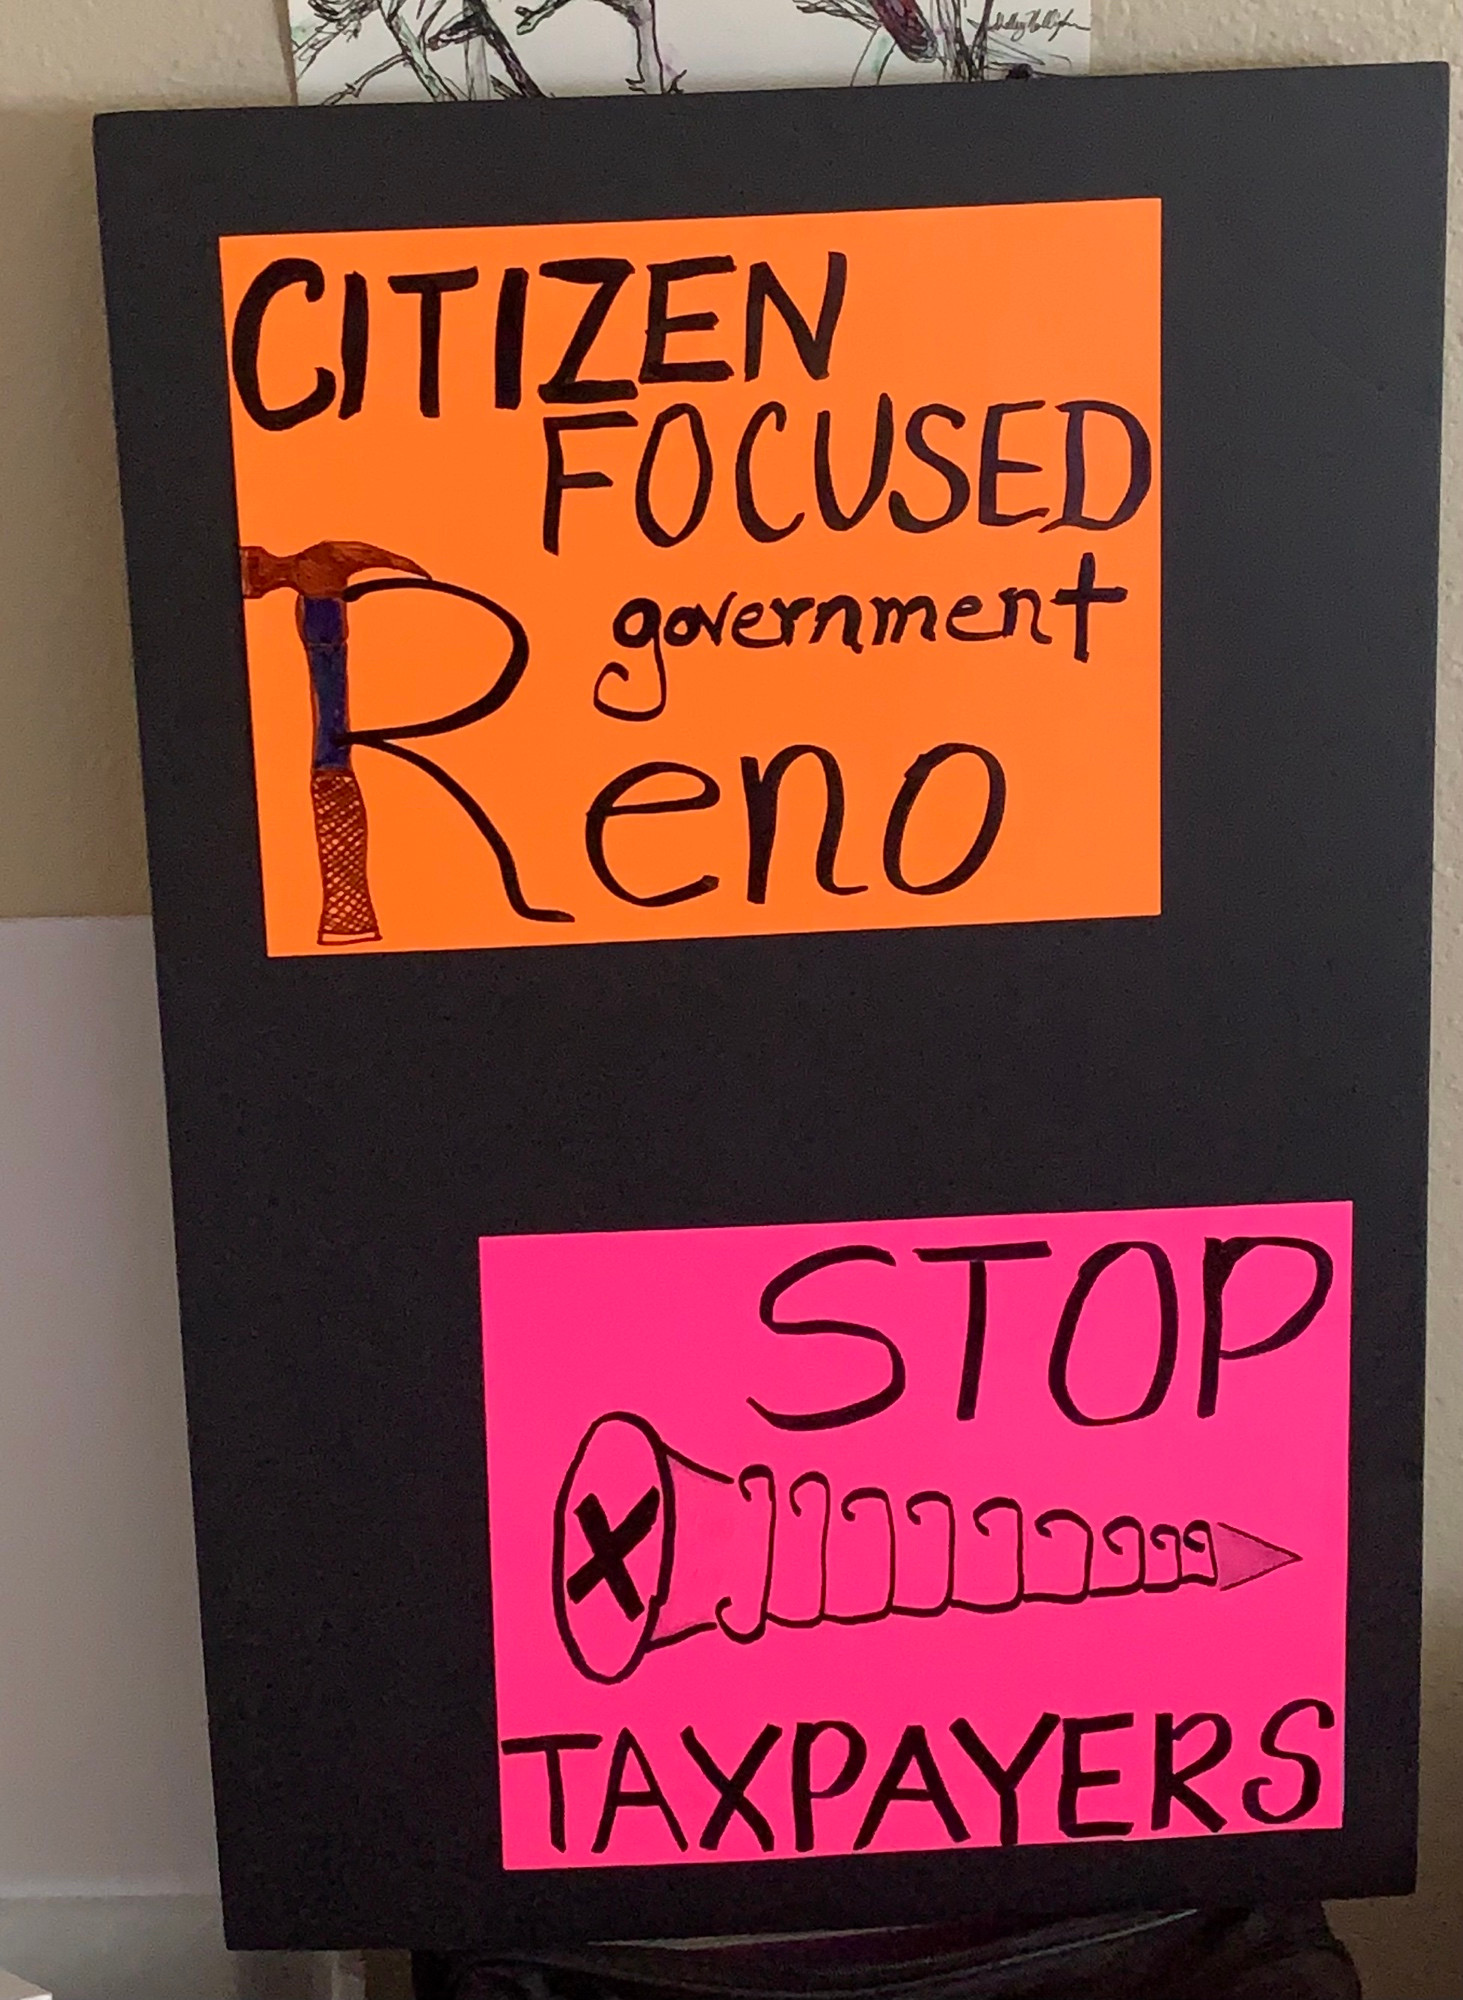 CITIZEN
FOCUSED
government
Reno
STOP
TAXPAYERS